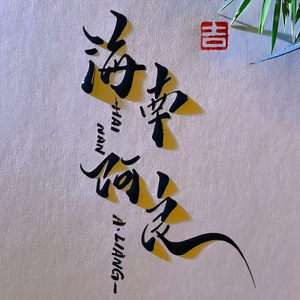 海南
HAI NAN
阿良
A·LIANG
吉